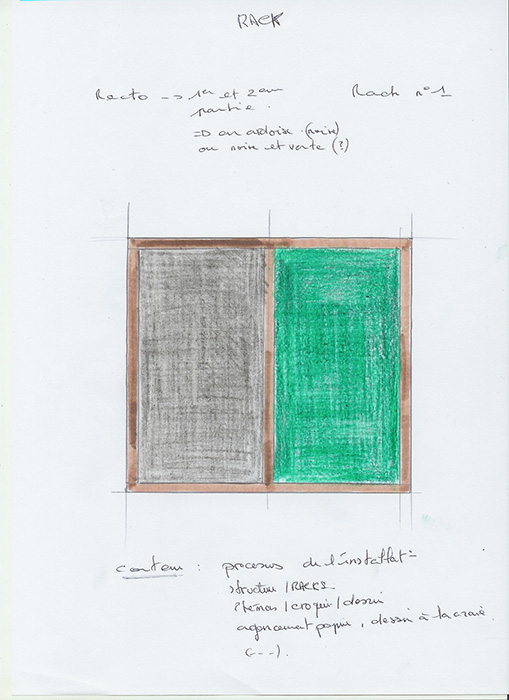 RACK
Recto -> 1er et 2em
partie.
Rack n°1
=D en ardoise (noire)
ou noire et verte (?)
contenu : processus de l'installat°
structure / RACKS
schémas / croquis / dessin
agencement papier, dessin à la craie
(---).